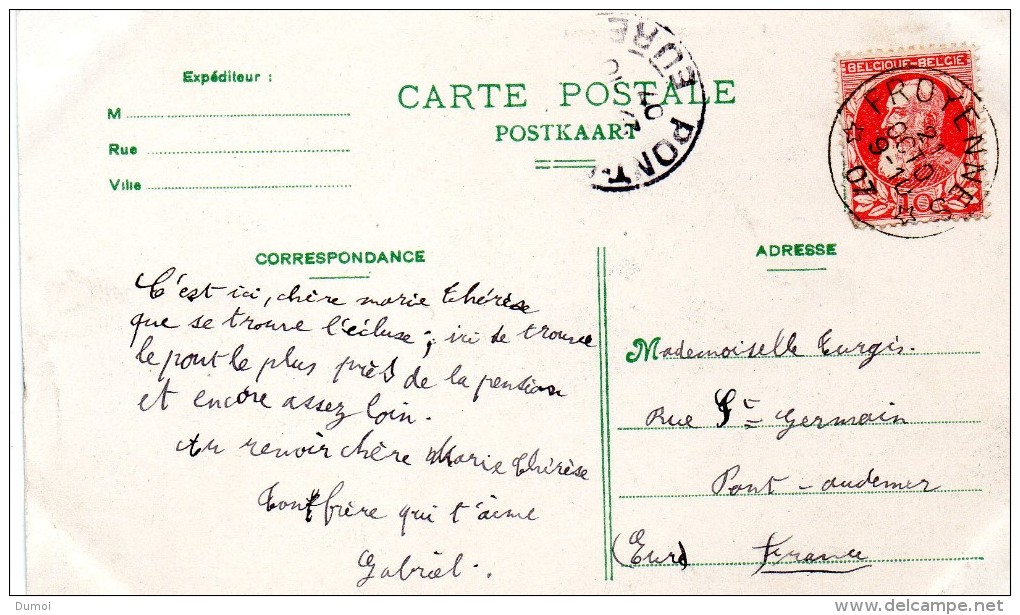 BELGIQUE-BELGIË
10
FROYENNES
21
OCT
9-10
07
PONT-
EURE
07
Expéditeur :
M
Rue
Ville
CARTE POSTALE
POSTKAART
CORRESPONDANCE
ADRESSE
C'est ici, chère marie thérèse
que se trouve l'écluse ; ici se trouve
le pont le plus près de la pension
et encore assez loin.
Au revoir chère Marie thérèse
Ton frère qui t'aime
Gabriel.
Mademoiselle Turgis.
Rue St Germain
Pont-audemer
(Eure) France
Dumoi
delcampe.net